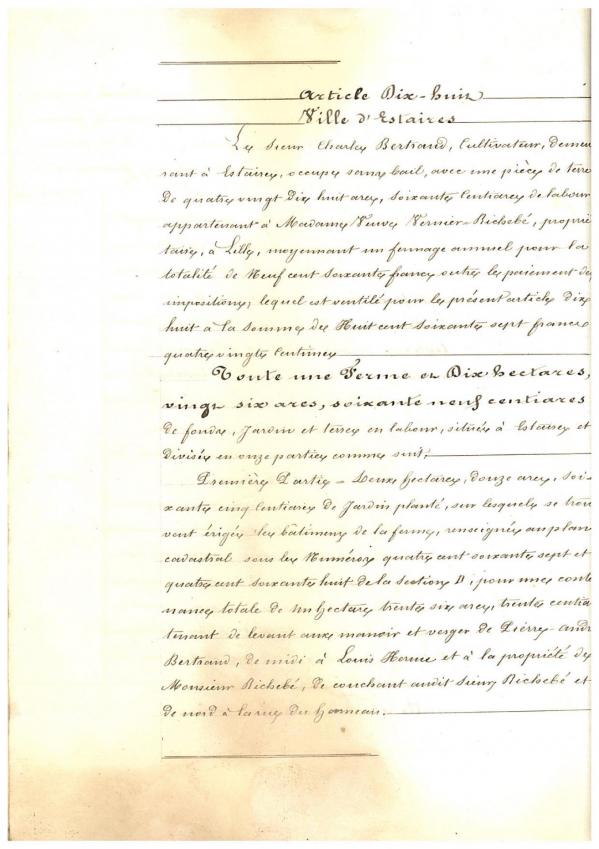 Article Dix-huit
Ville d'Estaires
Le Sieur Charles Bertrand, Cultivateur, demeu
rant à Estaires, occupe sans bail, avec une pièce de terre
de quatre vingt dix huit ares, soixante centiares de labour
appartenant à Madame Veuve Vernier-Richebé, proprié
taire, à Lille, moyennant un fermage annuel pour la
totalité de Neuf cent soixante francs outre le paiement des
impositions, lequel est ventilé pour le présent article Dix
huit à la somme de Huit cent soixante sept francs
quatre vingts centimes
Toute une Ferme et Dix hectares,
vingt six ares, soixante neuf centiares
de fonds, Jardin et terres en labour, située à Estaires et
Divisée en onze parties comme suit;
Première Partie - Deux hectares, douze ares, soi-
xante cinq centiares de Jardin planté, sur lesquels se trou
vent érigés les bâtimens de la ferme, renseignée au plan
cadastral sous les Numéros quatre cent soixante sept et
quatre cent soixante huit de la section D, pour une conte
nance totale de un hectare trente six ares, trente centia
tenant de levant aux manoir et verger de Pierre-andr
Bertrand, de midi à Louis et à la propriété de
Monsieur Richebé, de couchant audit Sieur Richebé et
de nord à la rue du